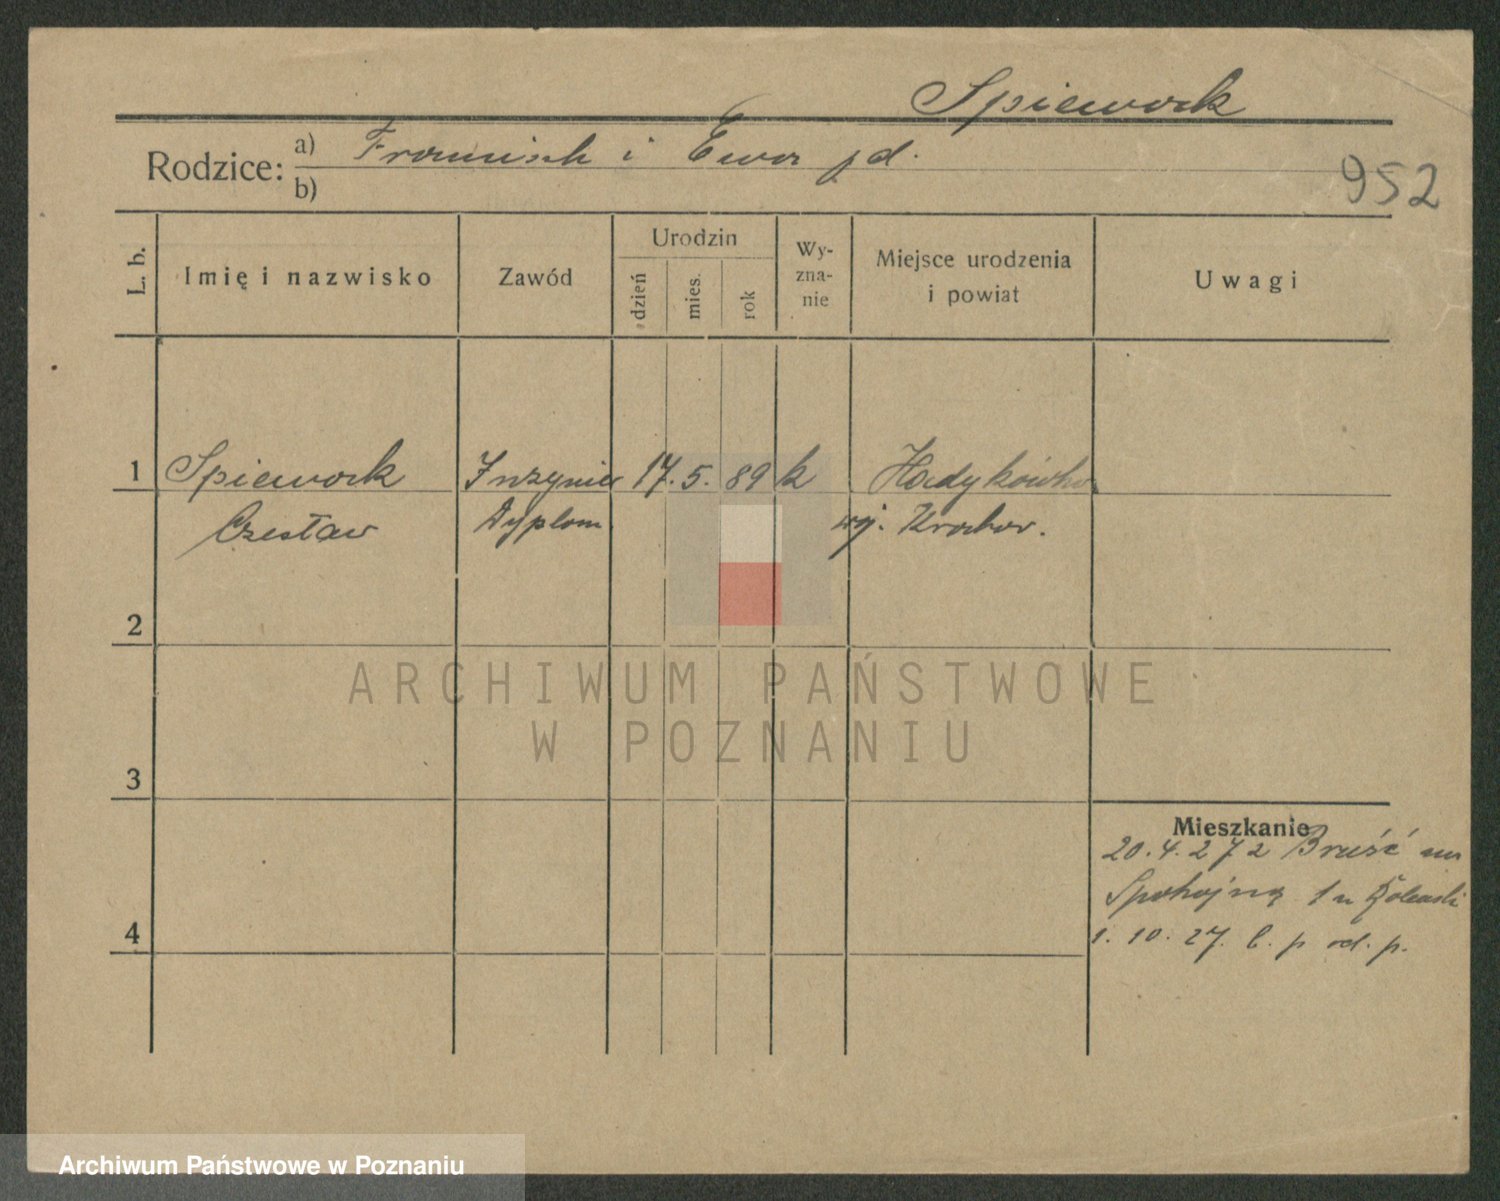 Spiewack
Rodzice: a) Franciszk i Ewa jd.
b)
952
L. b. Imię i nazwisko Zawód Urodzin dzień mies. rok Wyznanie Miejsce urodzenia i powiat Uwagi
1 Spiewack Inżynier 17. 5. 89 k Hadykówka
Czesław Dyplom. woj. Krakow.
2
3
4
Mieszkanie
20. 4. 27 z
Spokojną 1 u
1. 10. 27. b. p od. p.
ARCHIWUM PAŃSTWOWE
W POZNANIU
Archiwum Państwowe w Poznaniu